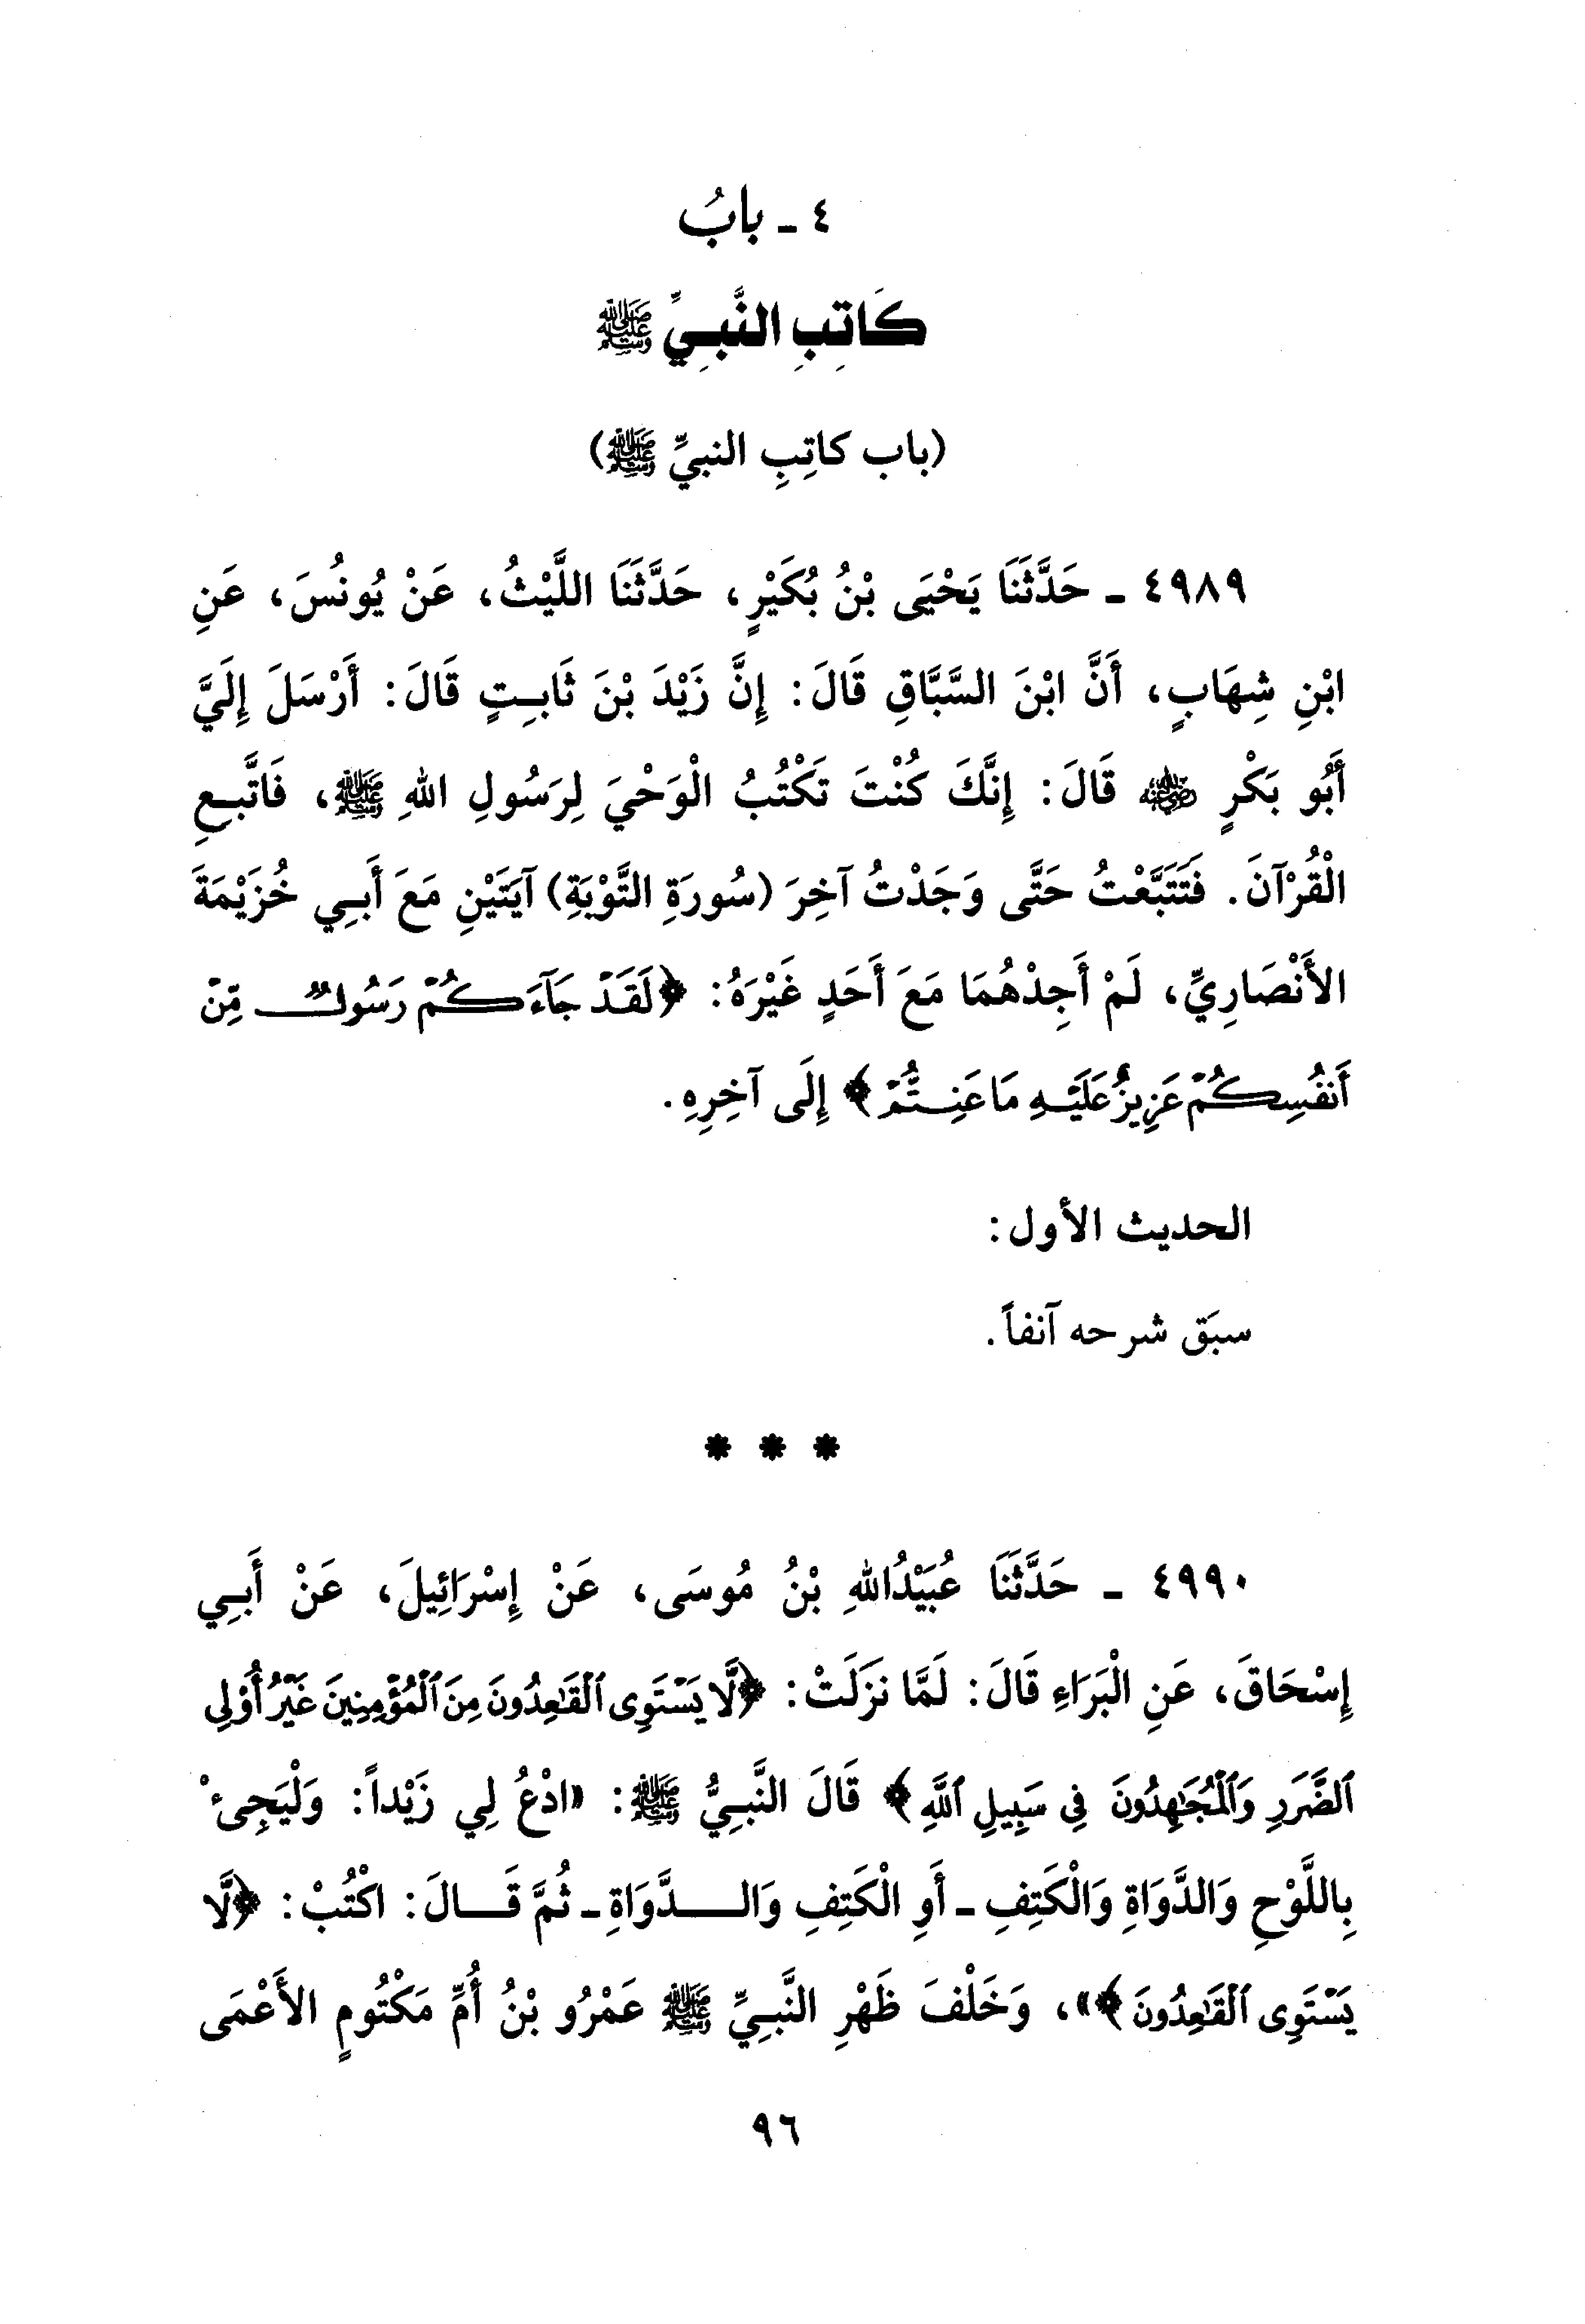 ٤ ـ بابُ
كَاتِبِ النَّبِيِّ ﷺ
(باب كاتِبِ النبيِّ ﷺ)
٤٩٨٩ ـ حَدَّثَنَا يَحْيَى بْنُ بُكَيْرٍ، حَدَّثَنَا اللَّيْثُ، عَنْ يُونُسَ، عَنِ
ابْنِ شِهَابٍ، أَنَّ ابْنَ السَّبَّاقِ قَالَ: إِنَّ زَيْدَ بْنَ ثَابِتٍ قَالَ: أَرْسَلَ إِلَيَّ
أَبُو بَكْرٍ رضي الله عنه قَالَ: إِنَّكَ كُنْتَ تَكْتُبُ الْوَحْيَ لِرَسُولِ اللهِ ﷺ، فَاتَّبِعِ
الْقُرْآنَ. فَتَتَبَّعْتُ حَتَّى وَجَدْتُ آخِرَ (سُورَةِ التَّوْبَةِ) آيَتَيْنِ مَعَ أَبِي خُزَيْمَةَ
الأَنْصَارِيِّ، لَمْ أَجِدْهُمَا مَعَ أَحَدٍ غَيْرَهُ: ﴿لَقَدۡ جَآءَكُمۡ رَسُولٌ مِّنۡ
أَنفُسِكُمۡ عَزِيزٌ عَلَيۡهِ مَا عَنِتُّمۡ﴾ إِلَى آخِرِهِ.
الحديث الأول:
سبَق شرحه آنفاً.
* * *
٤٩٩٠ ـ حَدَّثَنَا عُبَيْدُاللهِ بْنُ مُوسَى، عَنْ إِسْرَائِيلَ، عَنْ أَبِي
إِسْحَاقَ، عَنِ الْبَرَاءِ قَالَ: لَمَّا نَزَلَتْ: ﴿لَّا يَسۡتَوِى ٱلۡقَٰعِدُونَ مِنَ ٱلۡمُؤۡمِنِينَ غَيۡرُ أُوْلِى
ٱلضَّرَرِ وَٱلۡمُجَٰهِدُونَ فِى سَبِيلِ ٱللَّهِ﴾ قَالَ النَّبِيُّ ﷺ: «ادْعُ لِي زَيْداً: وَلْيَجِىءْ
بِاللَّوْحِ وَالدَّوَاةِ وَالْكَتِفِ ـ أَوِ الْكَتِفِ وَالدَّوَاةِ ـ ثُمَّ قَالَ: اكْتُبْ: ﴿لَّا
يَسۡتَوِى ٱلۡقَٰعِدُونَ﴾»، وَخَلْفَ ظَهْرِ النَّبِيِّ ﷺ عَمْرُو بْنُ أُمِّ مَكْتُومٍ الأَعْمَى
٩٦